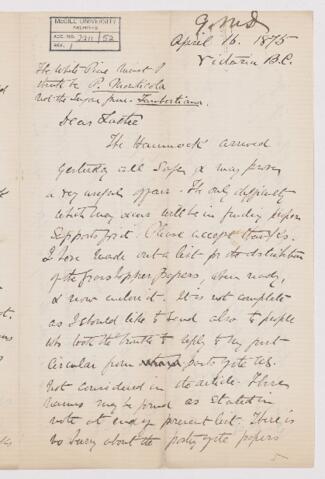 McGILL UNIVERSITY
ARCHIVES
ACC. NO. 2211 52
REF. 1
G.M.D
April 16. 1875
Victoria B.C.
The White Pine must
be P. Monticola
not the Sugar pine - Lambertiana.
Dear Father
The Hammock arrived
yesterday all safe & may prove
a very useful affair. The only difficulty
which may occur will be in finding proper
supports for it. Please accept thanks.
I have made out a list for the distribution
of the Grasshopper Papers, when ready,
& now enclose it. It is not complete
as I should like to send also to people
who took the trouble to reply to my first
circular from parts of the U.S.
not considered in the article. These
names may be found as stated in
note at end of present list. There is
no hurry about the papers
5